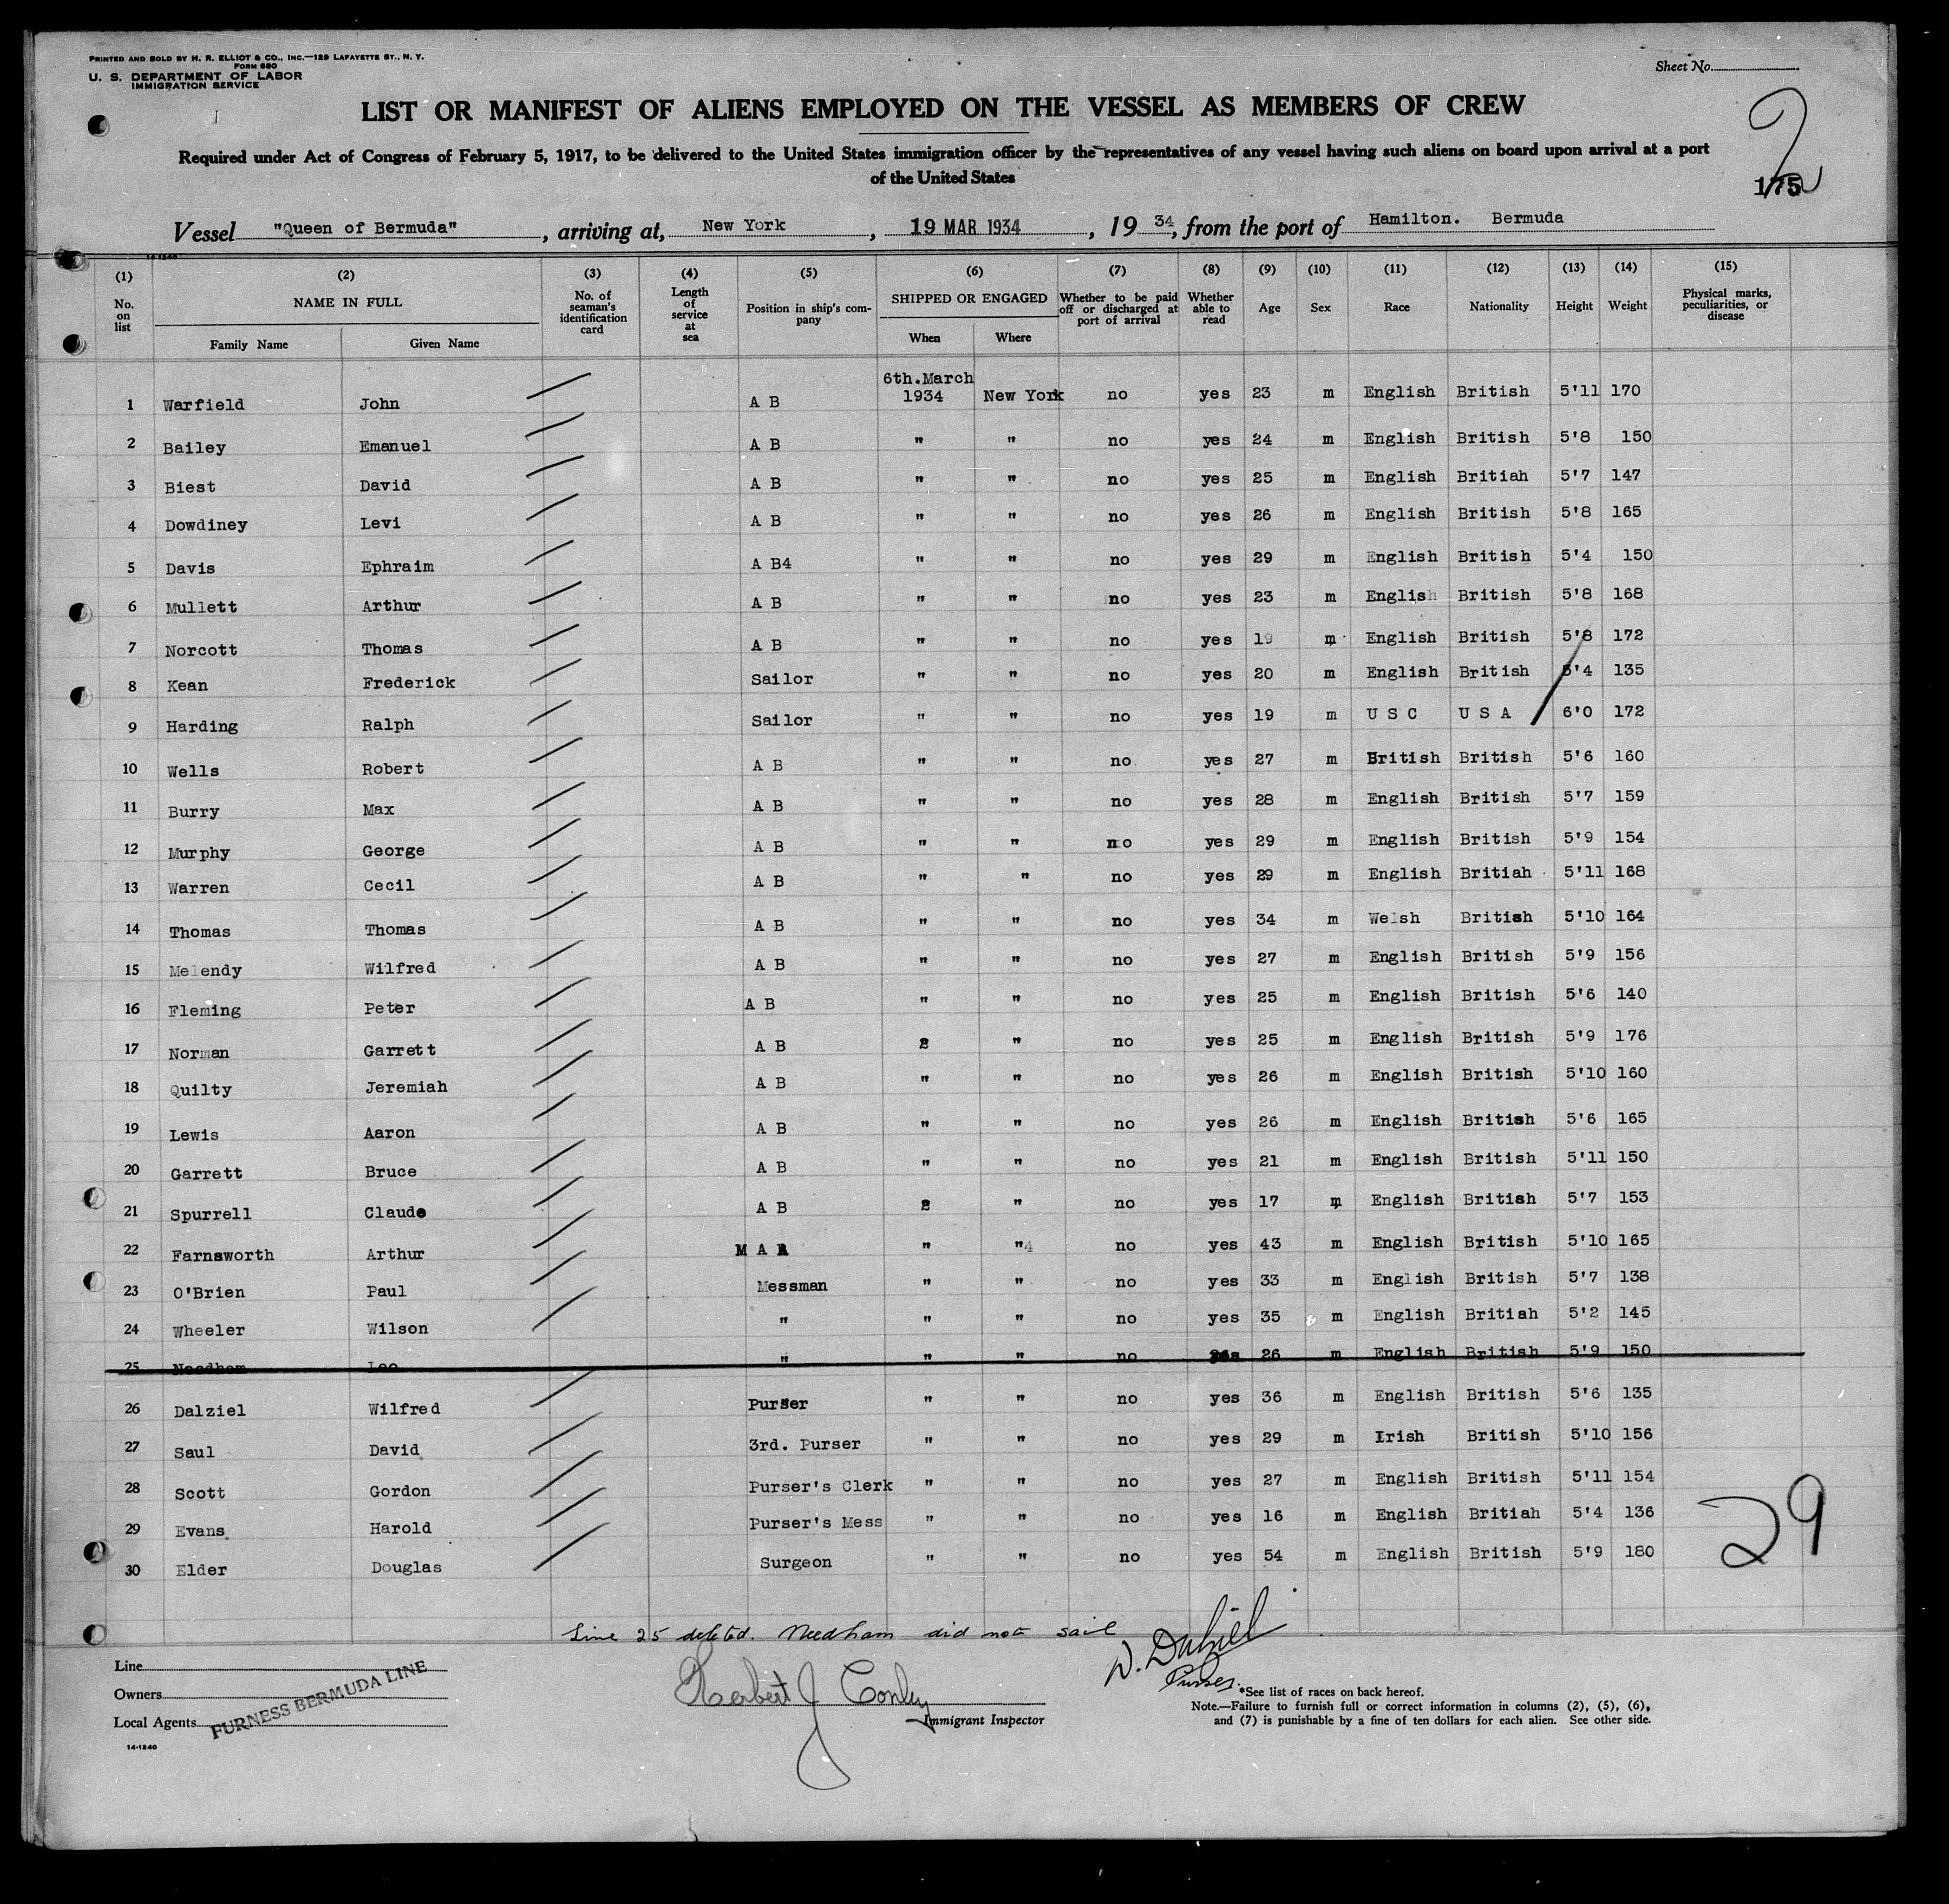 PRINTED AND SOLD BY H. R. ELLIOT & CO., INC.—129 LAFAYETTE ST., N. Y.
FORM 680
U. S. DEPARTMENT OF LABOR
IMMIGRATION SERVICE
Sheet No.
LIST OR MANIFEST OF ALIENS EMPLOYED ON THE VESSEL AS MEMBERS OF CREW
2
Required under Act of Congress of February 5, 1917, to be delivered to the United States immigration officer by the representatives of any vessel having such aliens on board upon arrival at a port
of the United States
175
Vessel "Queen of Bermuda", arriving at, New York, 19 MAR 1934, 19 34, from the port of Hamilton. Bermuda
14-1240
(1) (2) (3) (4) (5) (6) (7) (8) (9) (10) (11) (12) (13) (14) (15)
No. on list NAME IN FULL Family Name Given Name No. of seaman's identification card Length of service at sea Position in ship's company SHIPPED OR ENGAGED When Where Whether to be paid off or discharged at port of arrival Whether able to read Age Sex Race Nationality Height Weight Physical marks, peculiarities, or disease
1 Warfield John A B 6th.March 1934 New York no yes 23 m English British 5'11 170
2 Bailey Emanuel A B " " no yes 24 m English British 5'8 150
3 Biest David A B " " no yes 25 m English Britiah 5'7 147
4 Dowdiney Levi A B " " no yes 26 m English British 5'8 165
5 Davis Ephraim A B4 " " no yes 29 m English British 5'4 150
6 Mullett Arthur A B " " no yes 23 m English British 5'8 168
7 Norcott Thomas A B " " no yes 19 m English British 5'8 172
8 Kean Frederick Sailor " " no yes 20 m English British 5'4 135
9 Harding Ralph Sailor " " no yes 19 m U S C U S A 6'0 172
10 Wells Robert A B " " no yes 27 m British British 5'6 160
11 Burry Max A B " " no yes 28 m English British 5'7 159
12 Murphy George A B " " no yes 29 m English British 5'9 154
13 Warren Cecil A B " " no yes 29 m English Britiah 5'11 168
14 Thomas Thomas A B " " no yes 34 m Welsh British 5'10 164
15 Melendy Wilfred A B " " no yes 27 m English British 5'9 156
16 Fleming Peter A B " " no yes 25 m English British 5'6 140
17 Norman Garrett A B " no yes 25 m English British 5'9 176
18 Quilty Jeremiah A B " " no yes 26 m English British 5'10 160
19 Lewis Aaron A B " " no yes 26 m English British 5'6 165
20 Garrett Bruce A B " " no yes 21 m English British 5'11 150
21 Spurrell Claude A B " no yes 17 m English British 5'7 153
22 Farnsworth Arthur M A A " "4 no yes 43 m English British 5'10 165
23 O'Brien Paul Messman " " no yes 33 m English British 5'7 138
24 Wheeler Wilson " " " no yes 35 m English Britiah 5'2 145
25 Needham Leo " " " no yes 26 m English British 5'9 150
26 Dalziel Wilfred Purser " " no yes 36 m English British 5'6 135
27 Saul David 3rd. Purser " " no yes 29 m Irish British 5'10 156
28 Scott Gordon Purser's Clerk " " no yes 27 m English British 5'11 154
29 Evans Harold Purser's Mess " " no yes 16 m English Britiah 5'4 136
30 Elder Douglas Surgeon " " no yes 54 m English British 5'9 180
29
Line 25 deleted. Needham did not sail
W. Dalziel
Purser.
Line
Owners
Local Agents
FURNESS BERMUDA LINE
Herbert J Conley
Immigrant Inspector
*See list of races on back hereof.
Note.—Failure to furnish full or correct information in columns (2), (5), (6),
and (7) is punishable by a fine of ten dollars for each alien. See other side.
14-1240